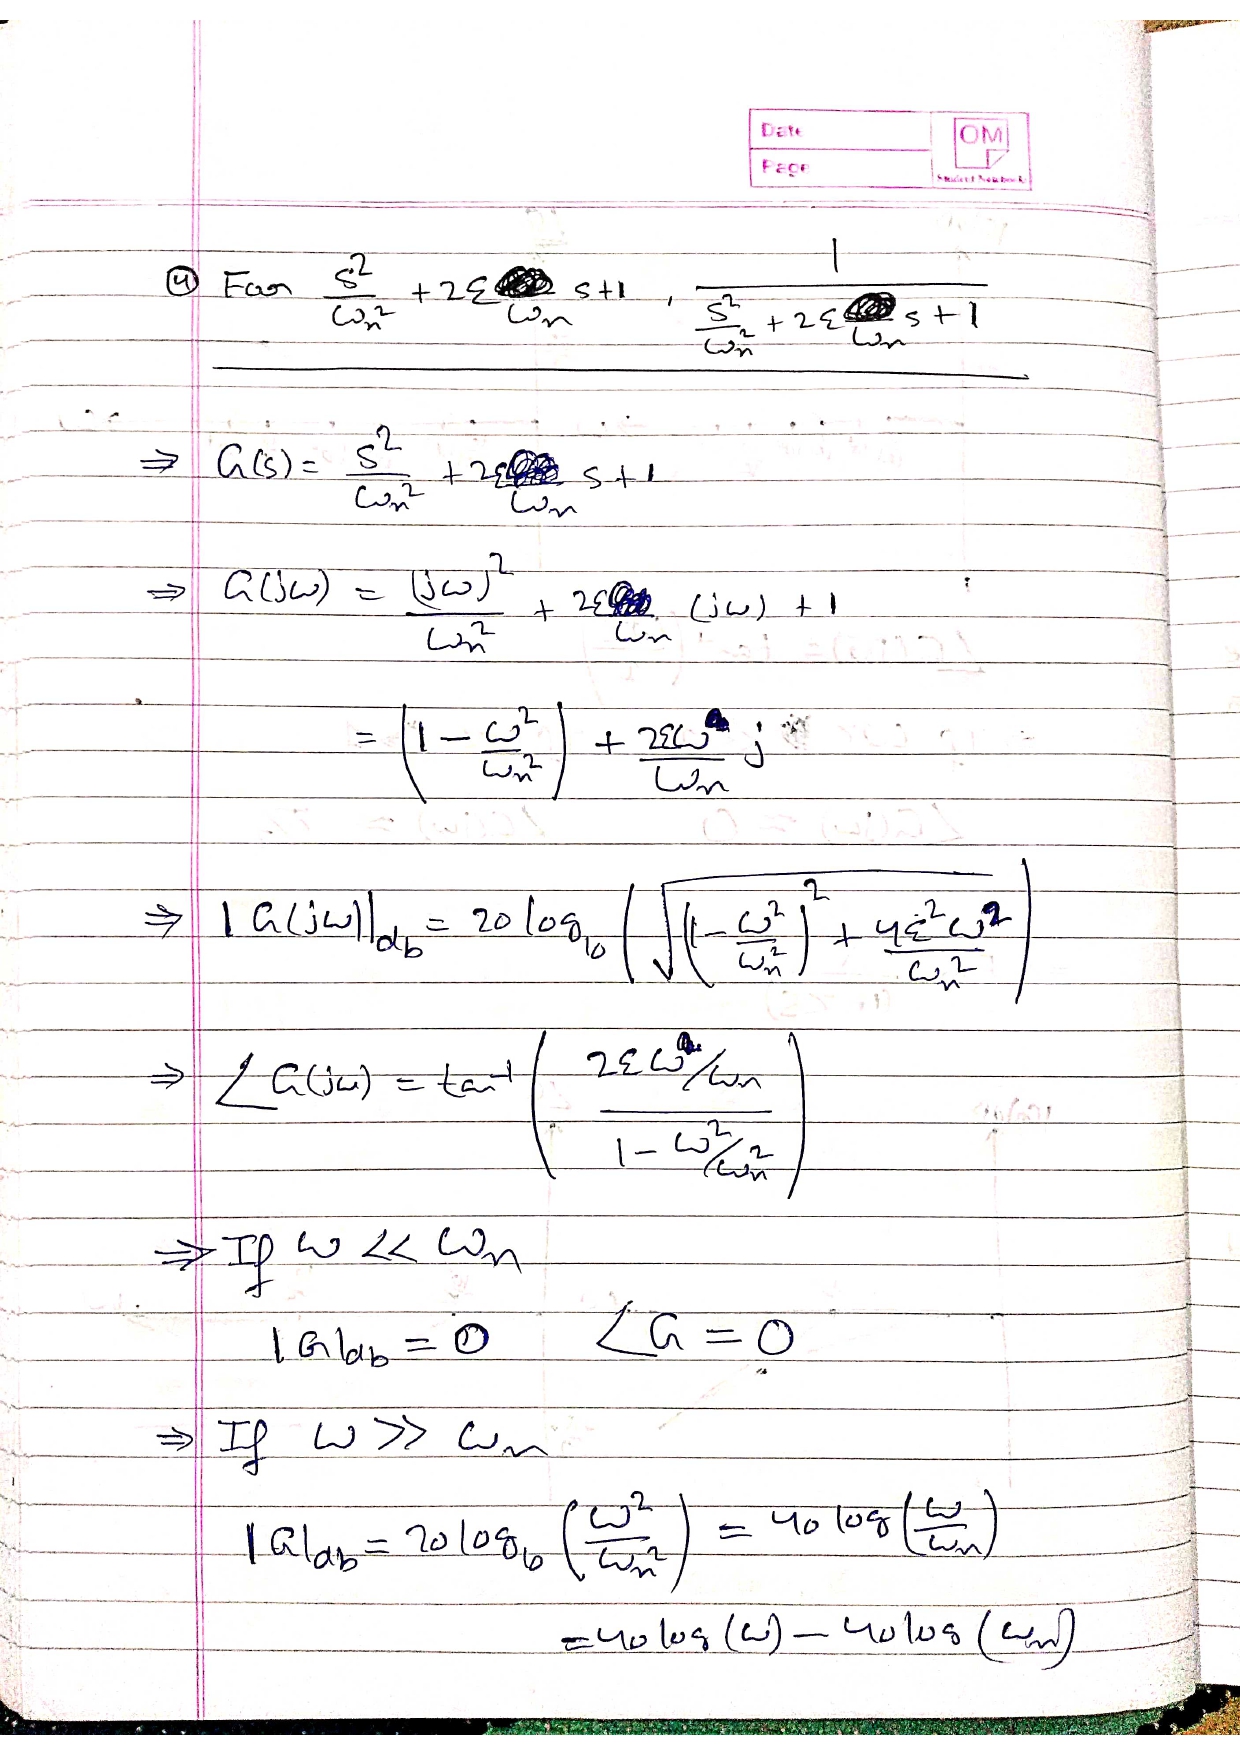 Date
Page
OM
Student Notebook
④ For s²/ωn² + 2ε/ωn s+1 , 1/(s²/ωn² + 2ε/ωn s + 1)
⇒ G(s) = s²/ωn² + 2ε/ωn s+1
⇒ G(jω) = (jω)²/ωn² + 2ε/ωn (jω) + 1
= (1 − ω²/ωn²) + 2εω/ωn j
⇒ |G(jω)|db = 20 log₁₀ (√((1 − ω²/ωn²)² + 4ε²ω²/ωn²))
⇒ ∠G(jω) = tan⁻¹ ((2εω/ωn)/(1 − ω²/ωn²))
⇒ If ω << ωn
|G|db = 0 ∠G = 0
⇒ If ω >> ωn
|G|db = 20 log₁₀ (ω²/ωn²) = 40 log (ω/ωn)
= 40 log (ω) − 40 log (ωn)